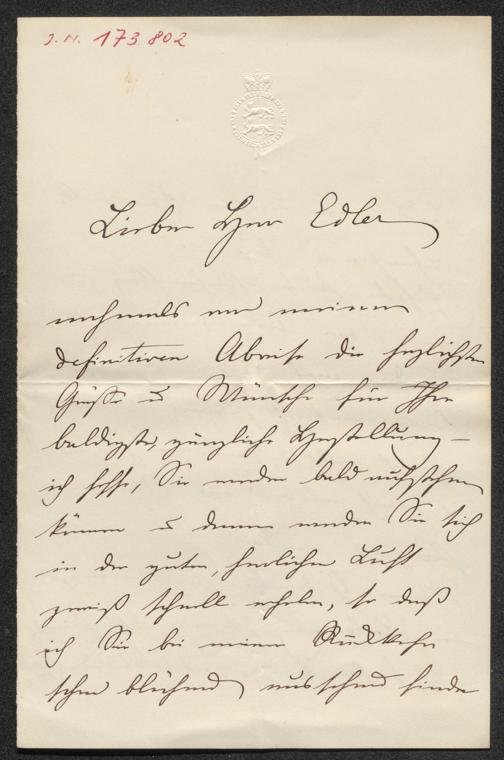 J.N. 173.802
Lieber Herr Edler
nochmals vor meiner
definitiven Abreise die herzlichsten
Grüße u Wünsche für Ihre
baldigste, gänzliche Herstellung –
ich hoffe, Sie werden bald aufstehen
können u dann werden Sie sich
in der guten, herrlichen Luft
gewiß schnell erholen, so daß
ich Sie bei meiner Rückkehr
schon blühend aussehend finde